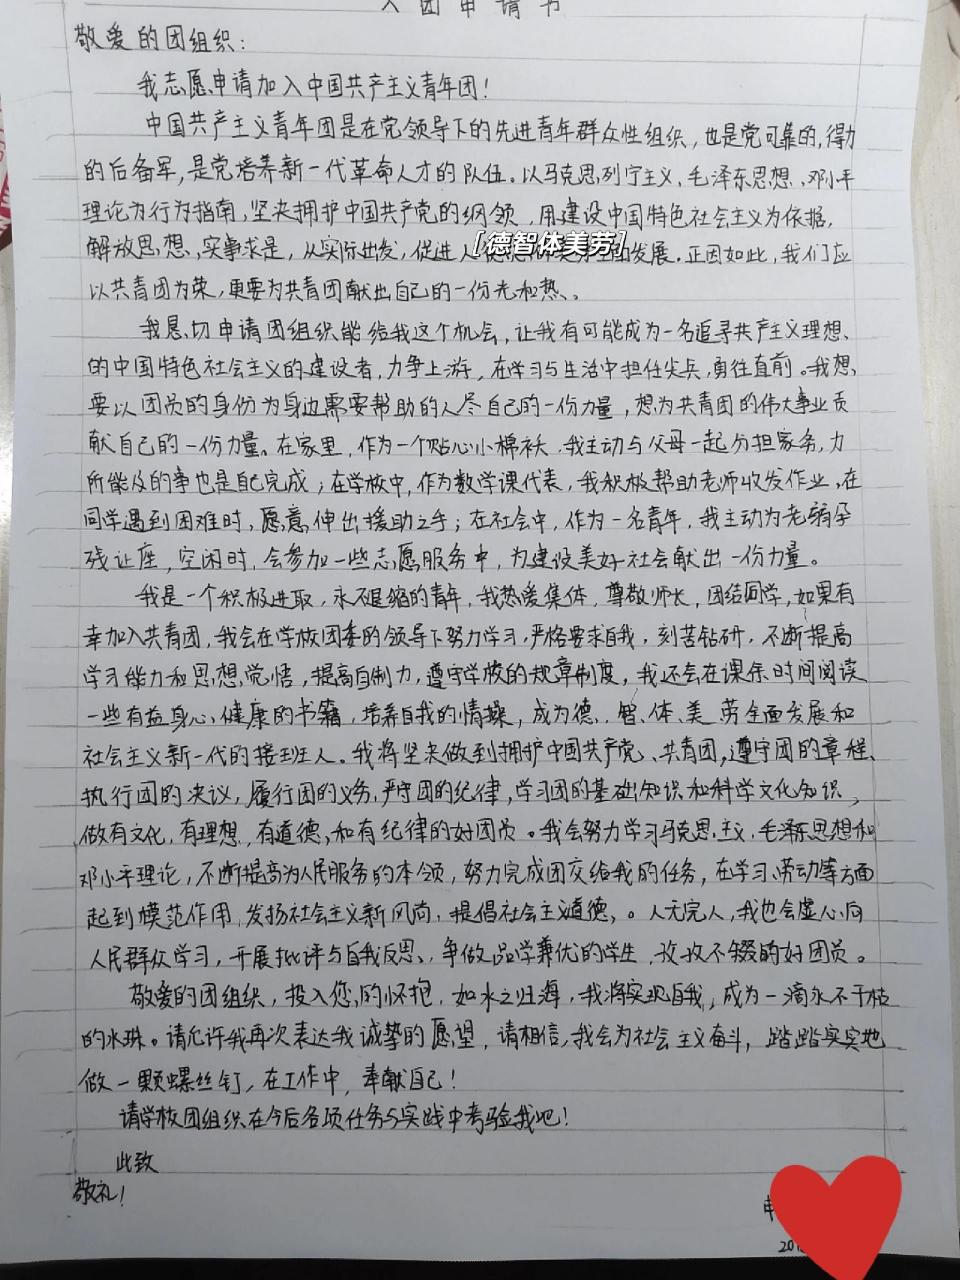 入团申请书
敬爱的团组织:
我志愿申请加入中国共产主义青年团!
中国共产主义青年团是在党领导下的先进青年群众性组织,也是党可靠的,得力
的后备军,是党培养新一代革命人才的队伍。以马克思列宁主义、毛泽东思想、邓小平
理论为行为指南,坚决拥护中国共产党的纲领,用建设中国特色社会主义为依据,
解放思想,实事求是,从实际出发,促进人[德智体美劳]发展。正因如此,我们应
以共青团为荣,更要为共青团献出自己的一份光和热、。
我恳切申请团组织能给我这个机会,让我有可能成为一名追寻共产主义理想、
的中国特色社会主义的建设者,力争上游,在学习与生活中担任尖兵,勇往直前。我想,
要以团员的身份为身边需要帮助的人尽自己的一份力量,想为共青团的伟大事业贡
献自己的一份力量。在家里,作为一个贴心小棉袄,我主动与父母一起分担家务,力
所能及的事也是自己完成;在学校中,作为数学课代表,我积极帮助老师收发作业,在
同学遇到困难时,愿意伸出援助之手;在社会中,作为一名青年,我主动为老弱孕
残让座,空闲时,会参加一些志愿服务中,为建设美好社会献出一份力量。
我是一个积极进取,永不退缩的青年,我热爱集体,尊敬师长,团结同学,如果有
幸加入共青团,我会在学校团委的领导下努力学习,严格要求自我,刻苦钻研,不断提高
学习能力和思想觉悟,提高自制力,遵守学校的规章制度,我还会在课余时间阅读
一些有益身心健康的书籍,培养自我的情操,成为德、智、体、美、劳全面发展和
社会主义新一代的接班人。我将坚决做到拥护中国共产党、共青团,遵守团的章程、
执行团的决议,履行团的义务,严守团的纪律,学习团的基础知识和科学文化知识,
做有文化,有理想,有道德,和有纪律的好团员。我会努力学习马克思主义,毛泽东思想和
邓小平理论,不断提高为人民服务的本领,努力完成团交给我的任务,在学习、劳动等方面
起到模范作用,发扬社会主义新风尚,提倡社会主义道德,。人无完人,我也会虚心向
人民群众学习,开展批评与自我反思,争做品学兼优的学生,孜孜不辍的好团员。
敬爱的团组织,投入您的怀抱,如水之归海,我将实现自我,成为一滴永不干枯
的水珠。请允许我再次表达我诚挚的愿望,请相信,我会为社会主义奋斗,踏踏实实地
做一颗螺丝钉,在工作中,奉献自己!
请学校团组织在今后各项任务与实践中考验我吧!
此致
敬礼!
申